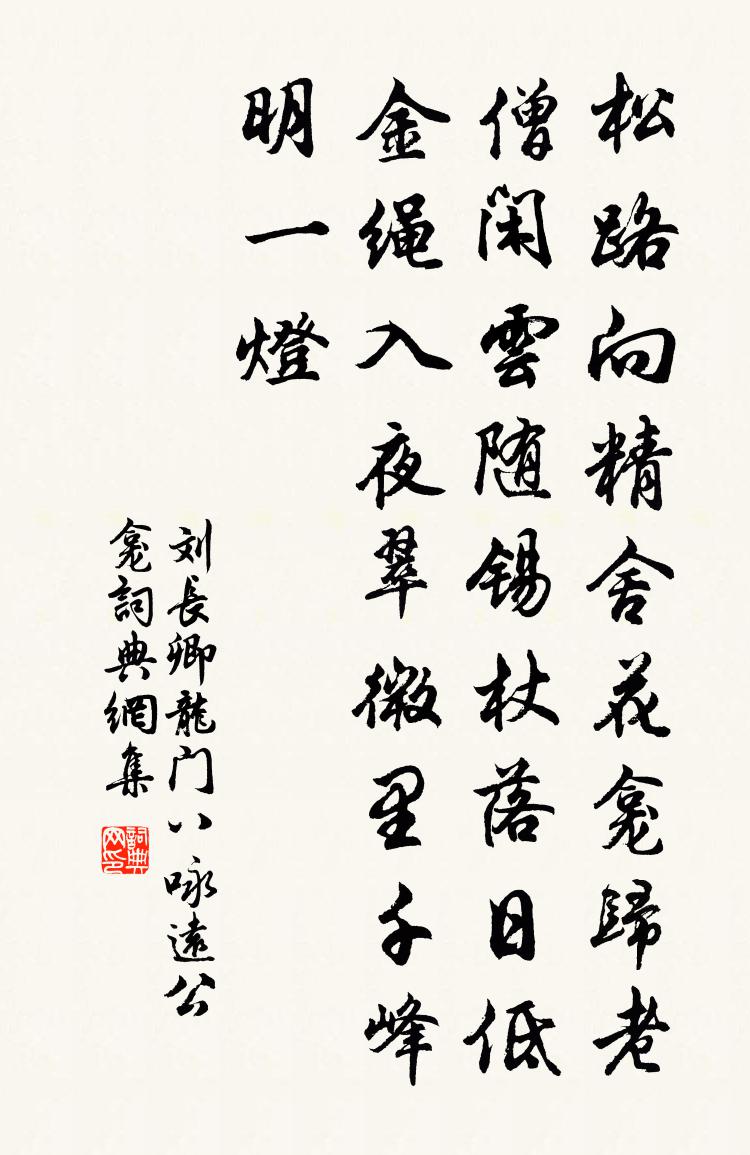 松路向精舍花龛歸老
僧闲雲随锡杖落日低
金绳入夜翠微里千峰
明一燈
刘長卿龍门八咏遠公
龛詞典網集
詞典网印